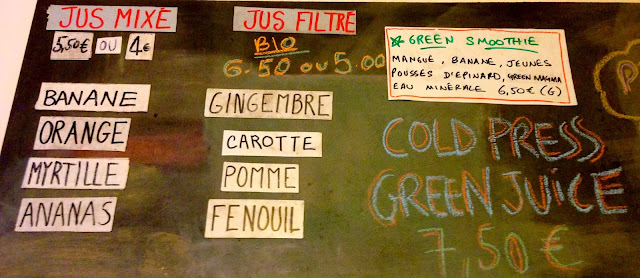 JUS MIXÉ
5,50€ OU 4€
BANANE
ORANGE
MYRTILLE
ANANAS
JUS FILTRÉ
BIO
6.50 ou 5.00
GINGEMBRE
CAROTTE
POMME
FENOUIL
GREEN SMOOTHIE
MANGUE, BANANE, JEUNES
POUSSES D'EPINARD, GREEN MAGMA
EAU MINERALE 6,50€ (G)
COLD PRESS
GREEN JUICE
7,50€